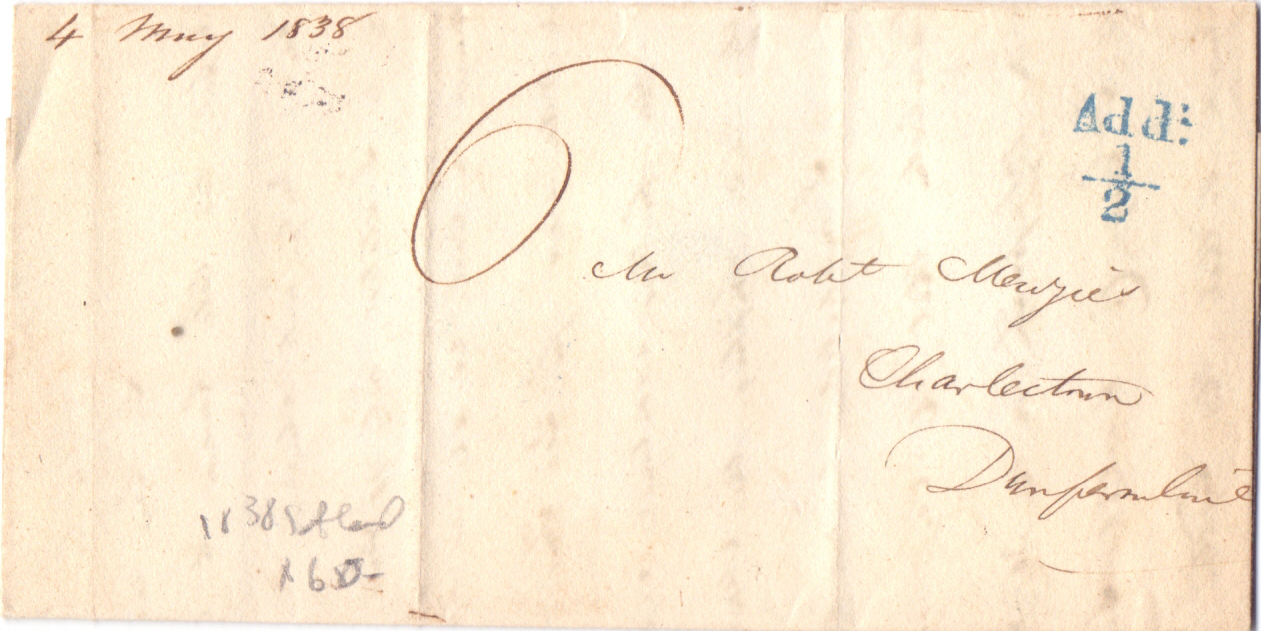 4 May 1838
6
Add:
1/2
Mr Robt Menzies
Charlestown
Dunfermline
1838